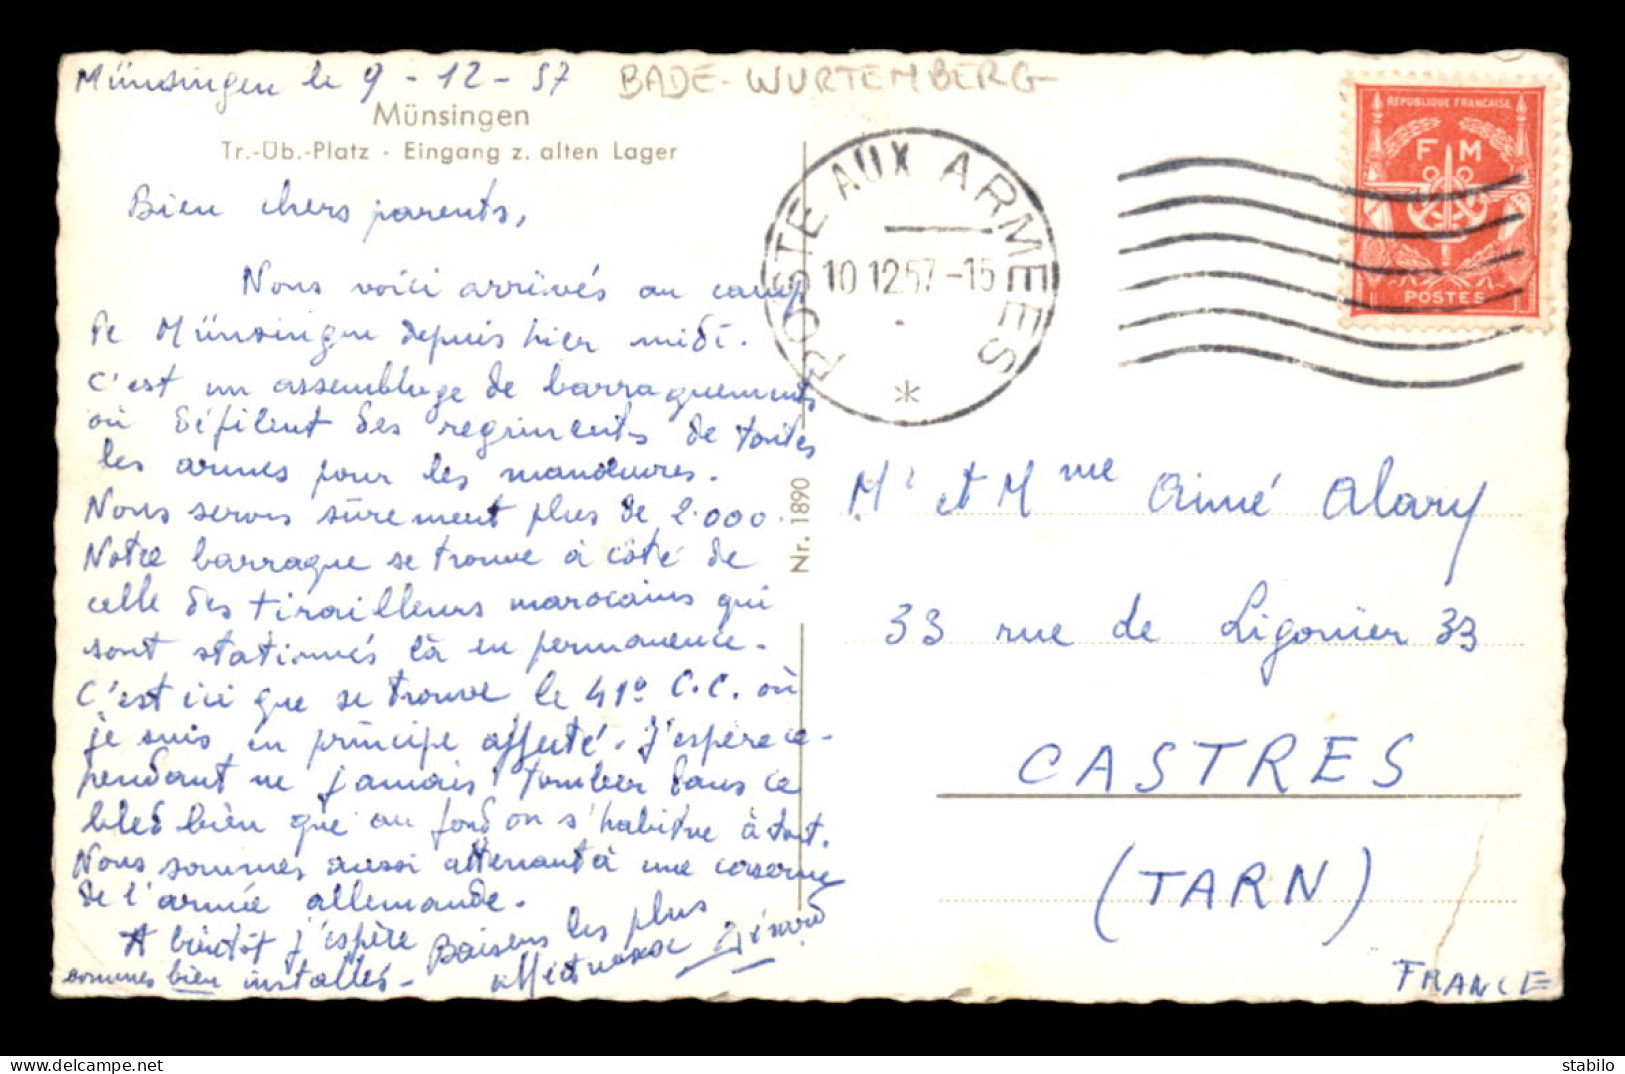 Münsingen le 9 - 12 - 57
BADE - WURTEMBERG
Münsingen
Tr.-Üb.-Platz · Eingang z. alten Lager
Bien chers parents,
Nous voici arrivés au camp
de Münsingen depuis hier midi.
C'est un assemblage de barraquements
où défilent des regiments de toutes
les armes pour les manœuvres.
Nous serons sûrement plus de 2.000.
Notre barraque se trouve à côté de
celle des tirailleurs marocains qui
sont stationnés là en permanence.
C'est ici que se trouve le 41º C.C. où
je suis en principe affecté. J'espère ce-
pendant ne jamais tomber dans ce
bled bien que au fond on s'habitue à tout.
Nous sommes aussi attenant à une caserne
de l'armée allemande.
A bientôt j'espère
Baisers les plus
affectueux Gérard
sommes bien installés.
Nr. 1890
POSTE AUX ARMEES
10 12 57 -15
*
REPUBLIQUE FRANCAISE
F M
POSTES
Mr et Mme Aimé Alary
33 rue de Ligonier 33
CASTRES
(TARN)
FRANCE
stabilo